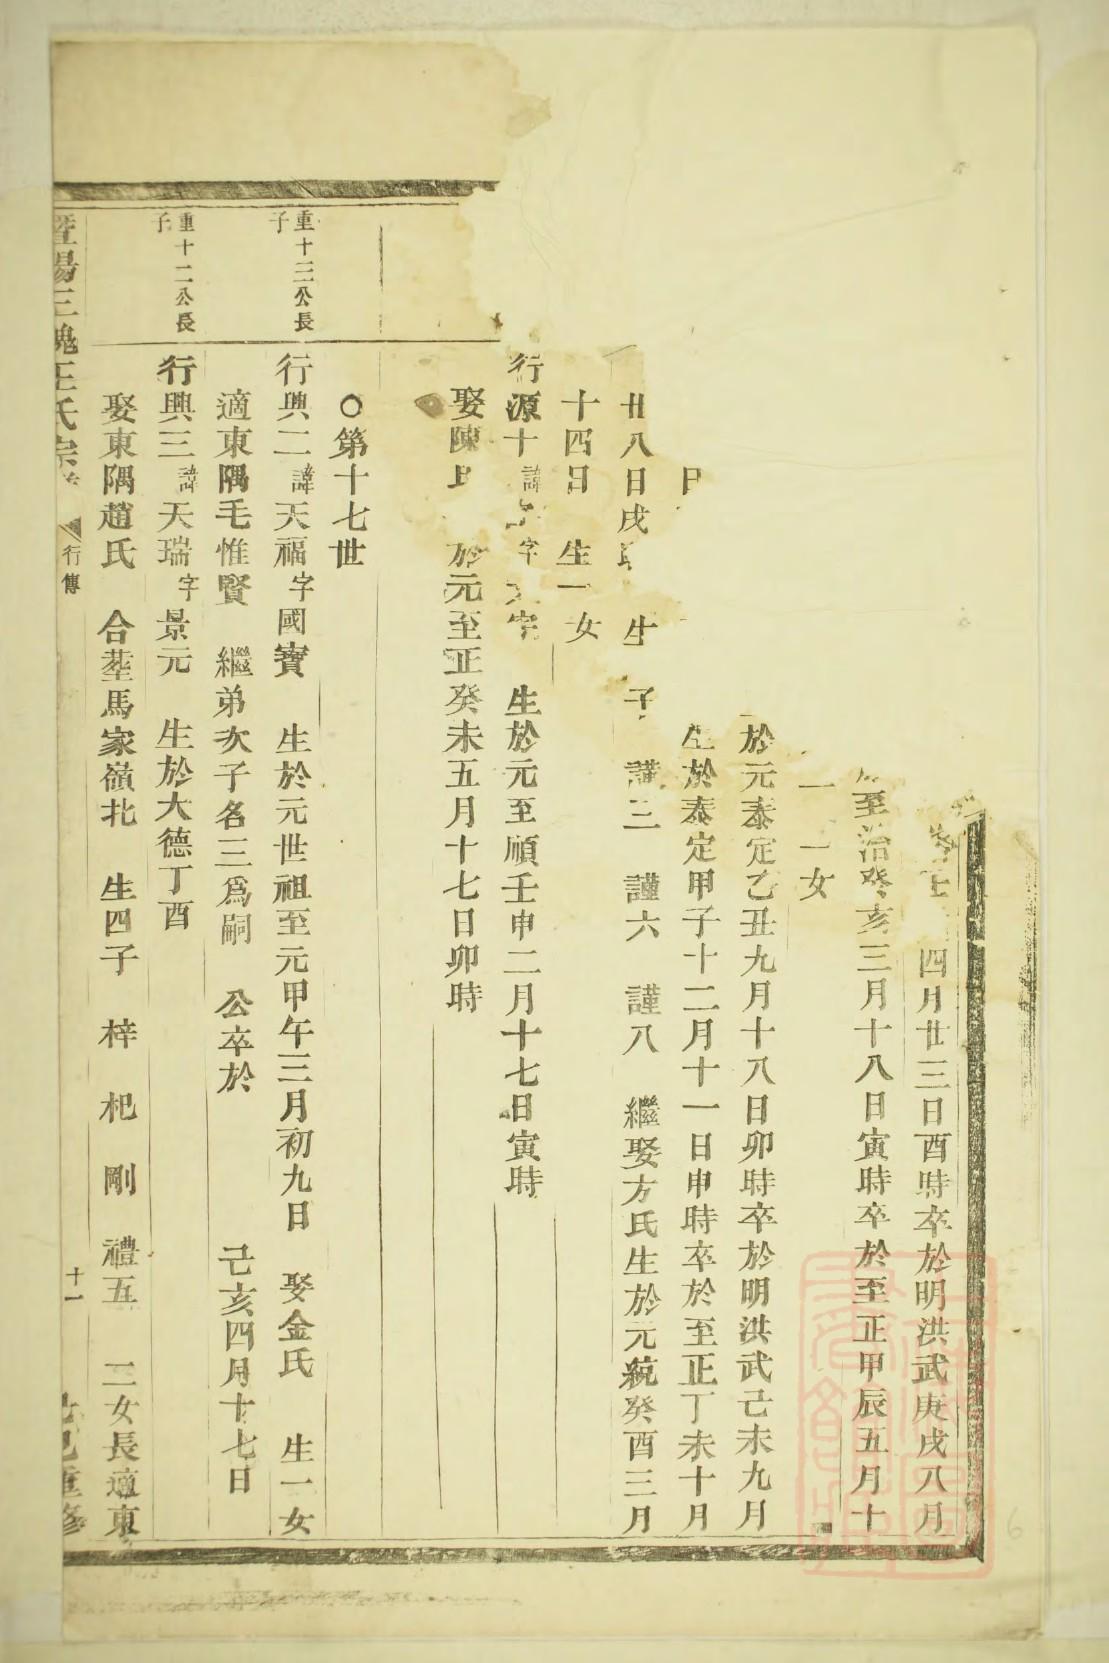 四月廿三日酉時卒於明洪武庚戌八月
至治癸亥三月十八日寅時卒於至正甲辰五月十
一 一女
於元泰定乙丑九月十八日卯時卒於明洪武己未九月
生於泰定甲子十二月十一日申時卒於至正丁未十月
廿八日戌 生 子 謹三 謹六 謹八 繼娶方氏生於元統癸酉三月
十四日 生一女
行源十諱 字 生於元至順壬申二月十七日寅時
娶陳氏 於元至正癸未五月十七日卯時
○第十七世
重十三公長子
行興二諱天福字國寶 生於元世祖至元甲午三月初九日 娶金氏 生一女
適東隅毛惟賢 繼弟次子名三爲嗣 公卒於 己亥四月十七日
重十二公長子
行興三諱天瑞字景元 生於大德丁酉
娶東隅趙氏 合塟馬家嶺北 生四子 梓 杞 剛 禮五 二女長適東
暨陽三槐王氏宗 行傳 十一 重修